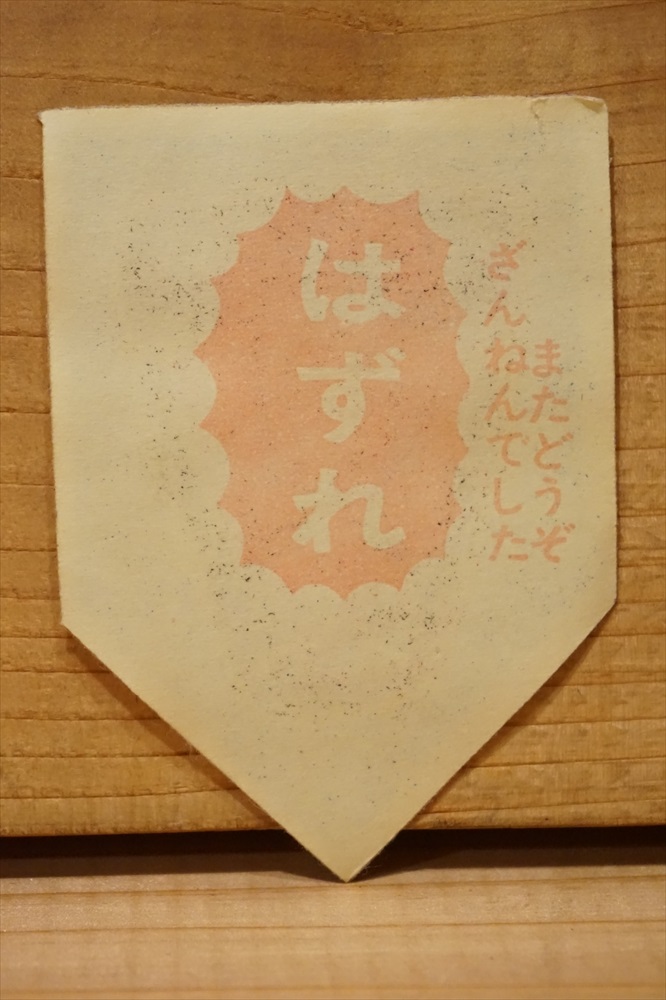 はずれ
ざんねんでした
またどうぞ